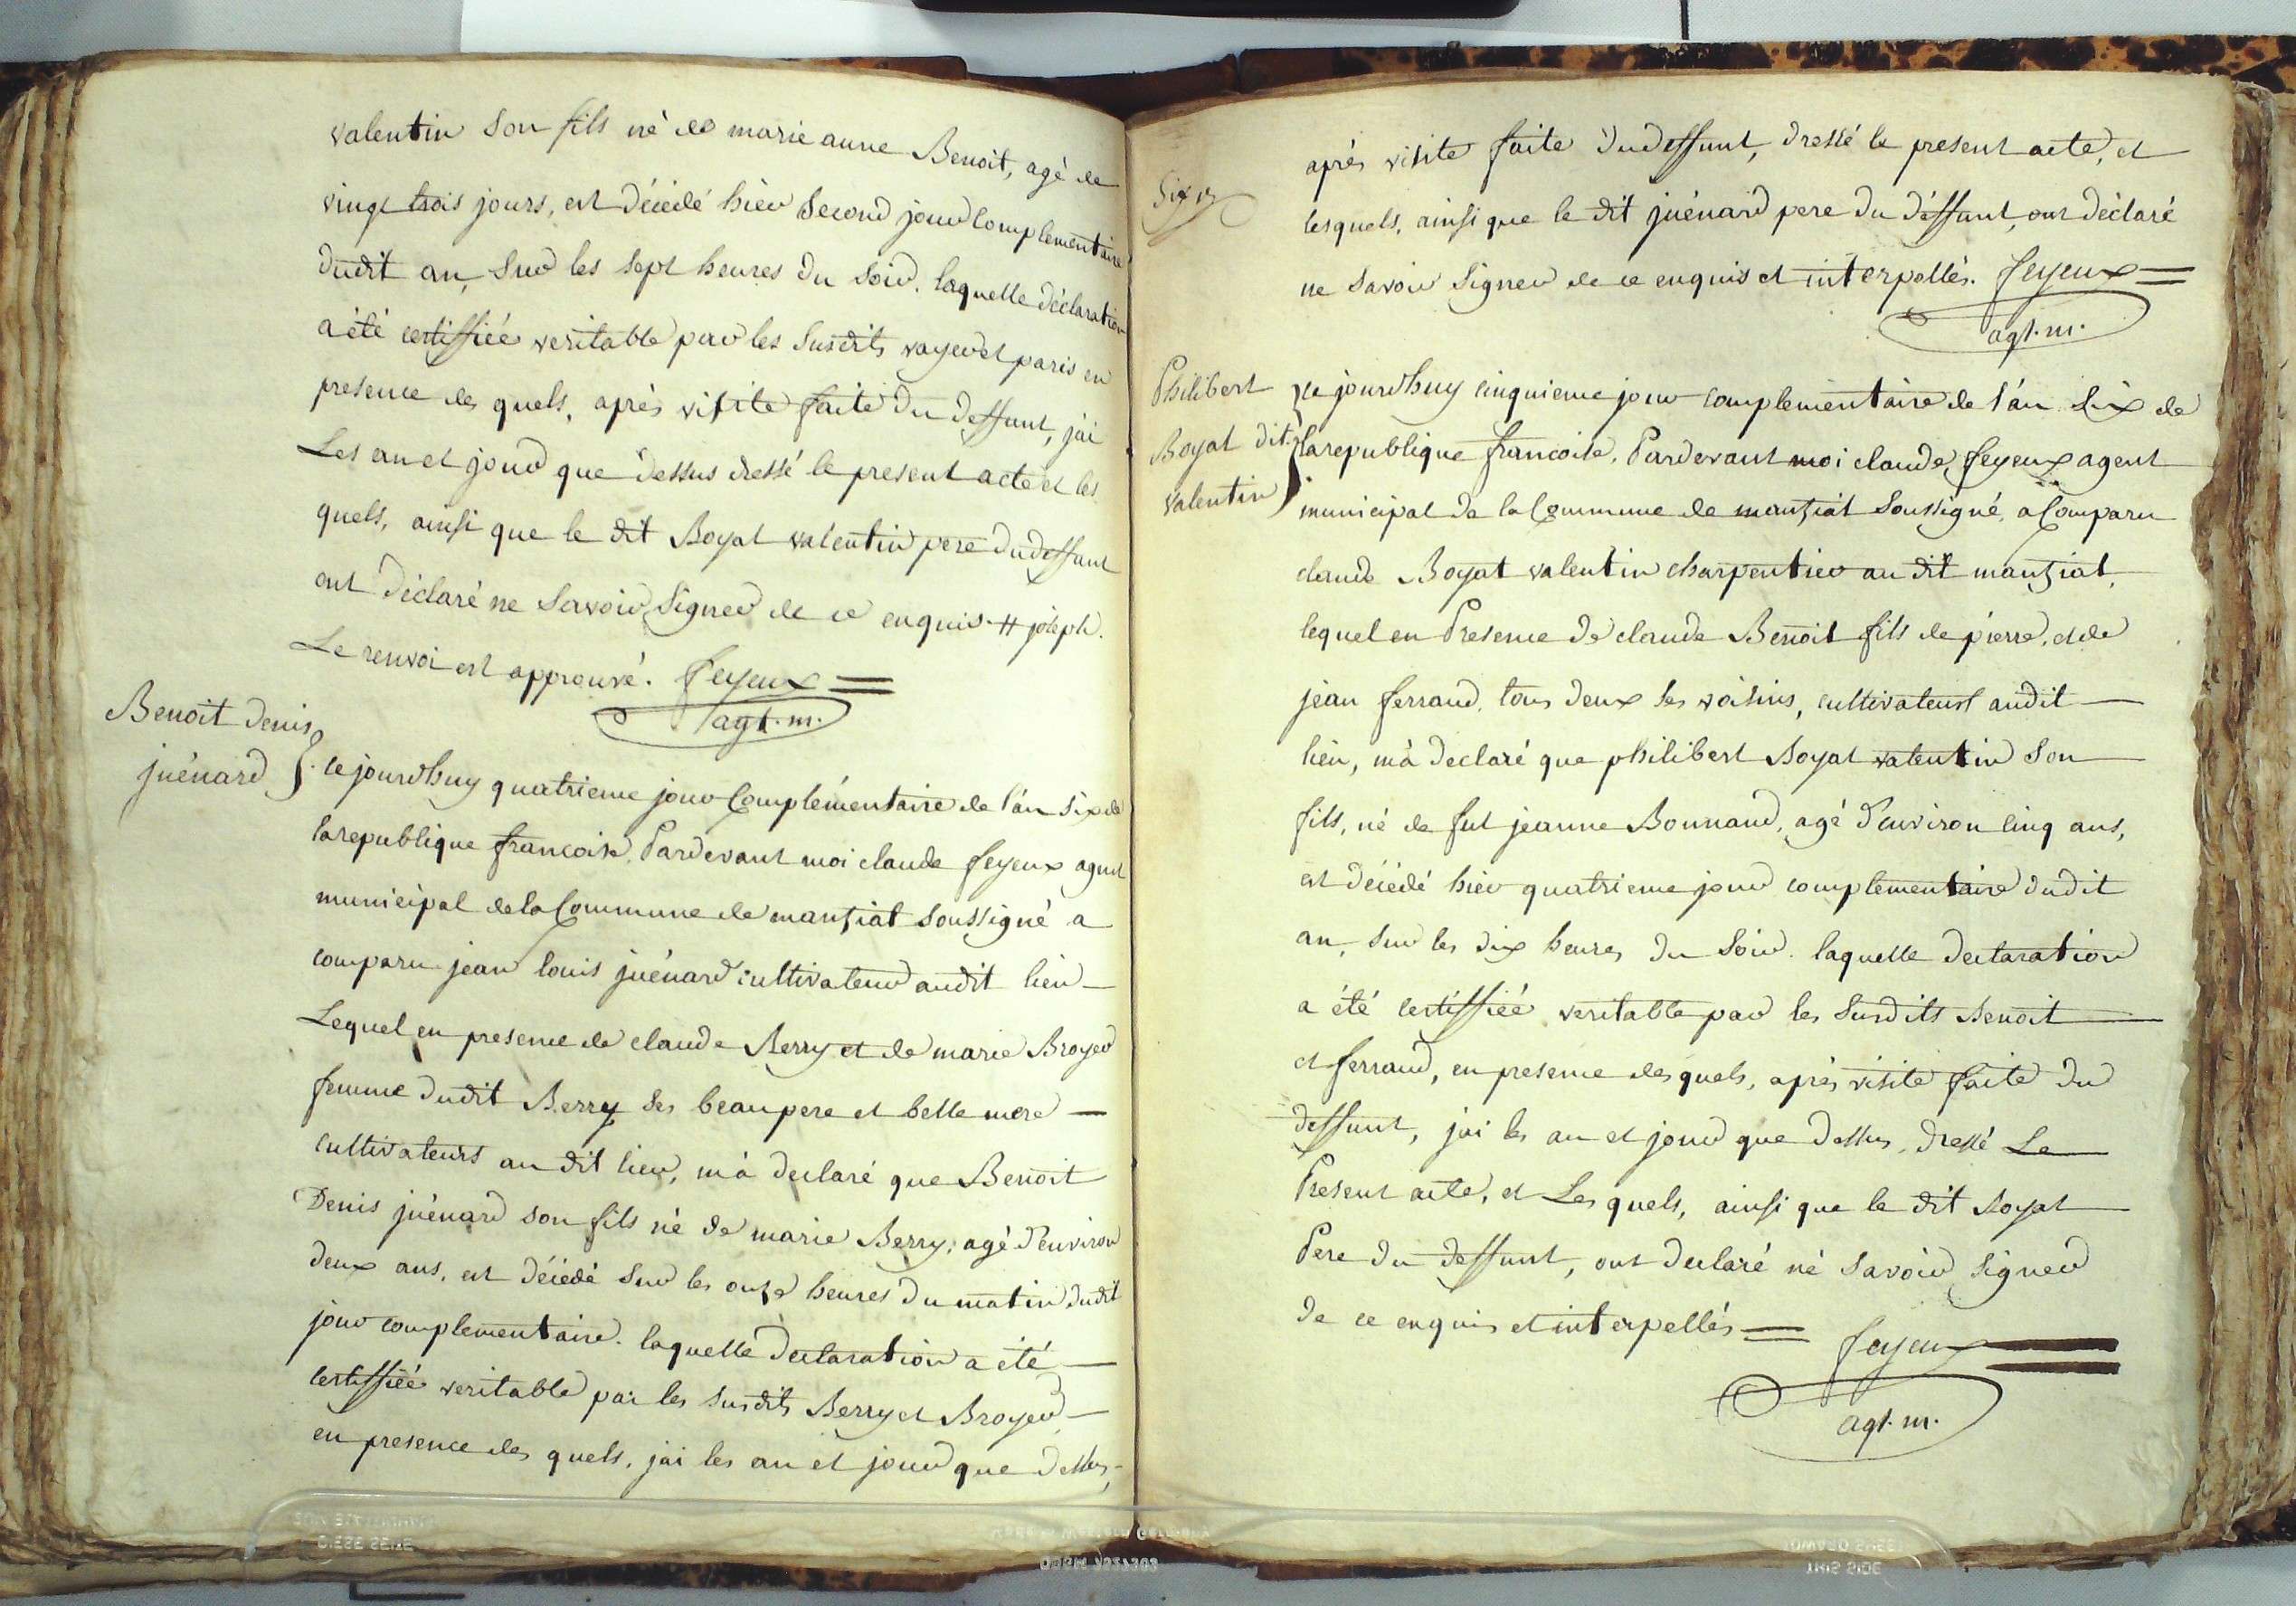 valentin son fils né de marie anne Benoit, agé de
vingt trois jours, est décédé hier second jour complementaire
dudit an, sur les sept heures du soir. laquelle déclaration
a été certiffiée veritable par les susdits voyer et paris en
presence des quels, après visite faite du deffunt, jai
Les an et jour que dessus dressé le present acte et les
quels, ainsi que le dit Boyat valentin pere du deffunt
ont déclaré ne savoir signer de ce enquis # joseph.
Le renvoi est approuvé. feyeux
agt. m.
Benoit Denis
juénard
cejourdhuy quatrieme jour complémentaire de l'an six de
la republique francoise, Pardevant moi claude feyeux agent
municipal de la Commune de manziat soussigné a
comparu jean louis juénard cultivateur audit lieu
Lequel en presence de claude Berry et de marie Broyer
femme dudit Berry ses beau pere et belle mere
cultivateurs au dit lieu, m'a declaré que Benoit
Denis juénard son fils né de marie Berry, agé d'environ
deux ans, est décédé sur les onze heures du matin dudit
jour complementaire. laquelle declaration a été
certiffiée veritable par les susdits Berry et Broyer
en presence des quels, jai les an et jour que dessus,
après visite faite du deffunt, dressé le present acte, et
lesquels, ainsi que le dit juénard pere du déffunt, ont déclaré
ne savoir signer de ce enquis et interpellés. feyeux
agt. m.
Philibert
Boyat dit
valentin
cejourdhuy cinquieme jour complementaire de l'an six de
la republique francoise, Pardevant moi claude feyeux agent
municipal de la Commune de manziat soussigné, a Comparu
claude Boyat valentin charpentier au dit manziat,
lequel en Presence de claude Benoit fils de pierre, et de
jean ferrand, tous deux ses voisins, cultivateurs audit
lieu, m'a declaré que philibert Boyat valentin son
fils, né de fut jeanne Bonnand, agé d'environ cinq ans,
est décédé hier quatrieme jour complementaire dudit
an, sur les dix heures du soir. laquelle declaration
a été certiffiée veritable par les susdits Benoit
et ferrand, en presence des quels, après visite faite du
deffunt, jai les an et jour que dessus, dressé Le
Present acte, et Les quels, ainsi que le dit Boyat
Pere du deffunt, ont declaré né savoir signer
de ce enquis et interpellés feyeux
agt. m.